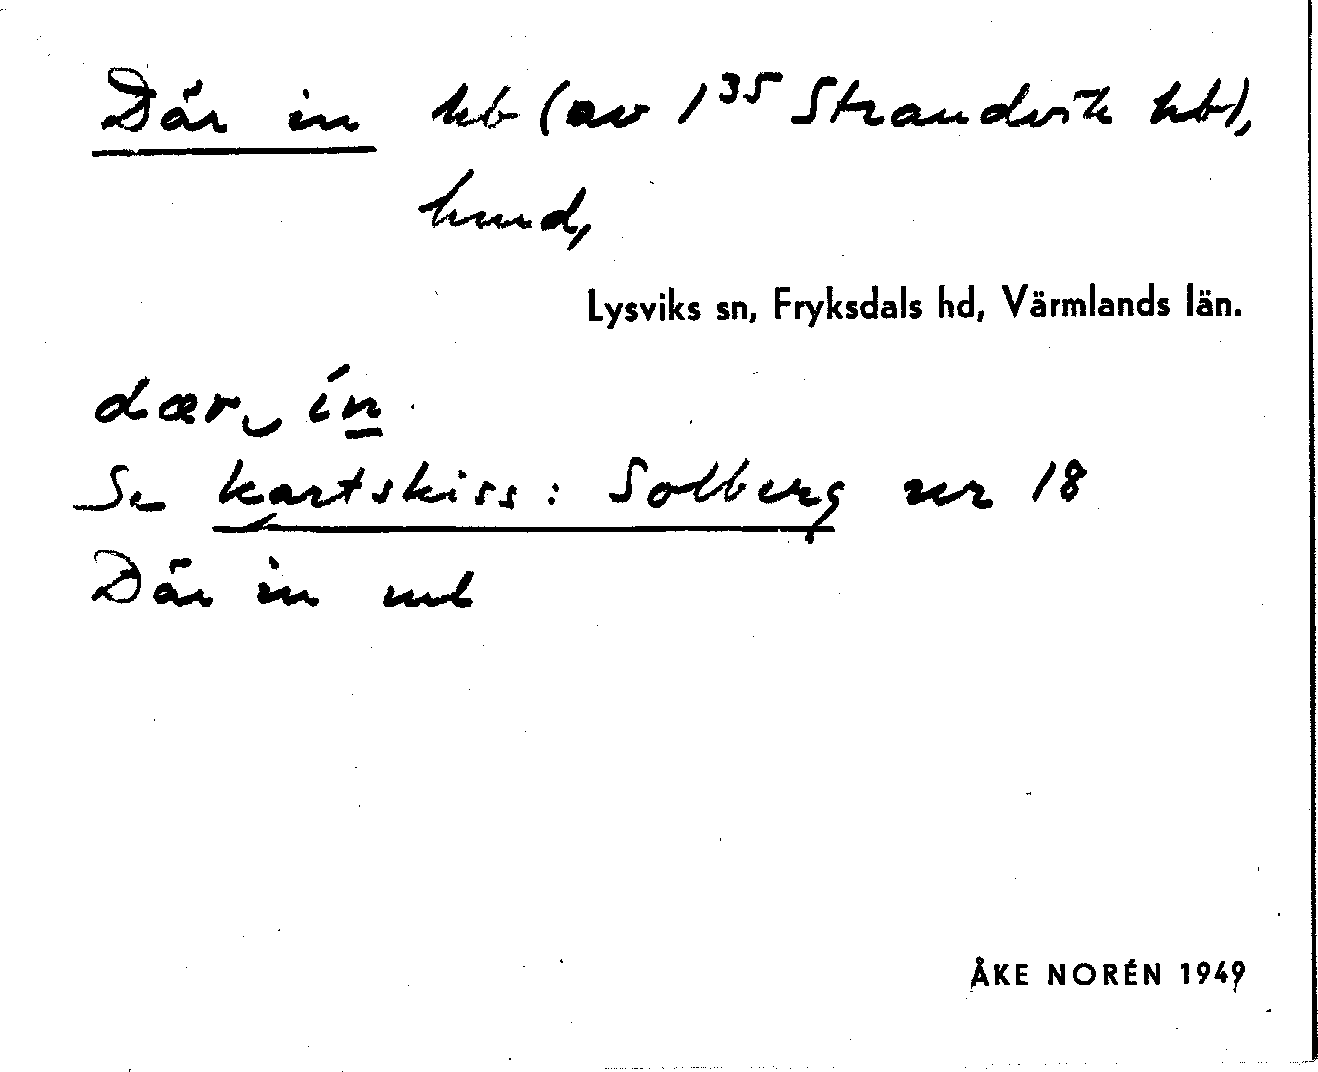 Där in hb (av 1³⁵ Strandvik hb),
hmd,
Lysviks sn, Fryksdals hd, Värmlands län.
dær‿ ín
Se kartskiss: Solberg nr 18
Där in
ÅKE NORÉN 1949